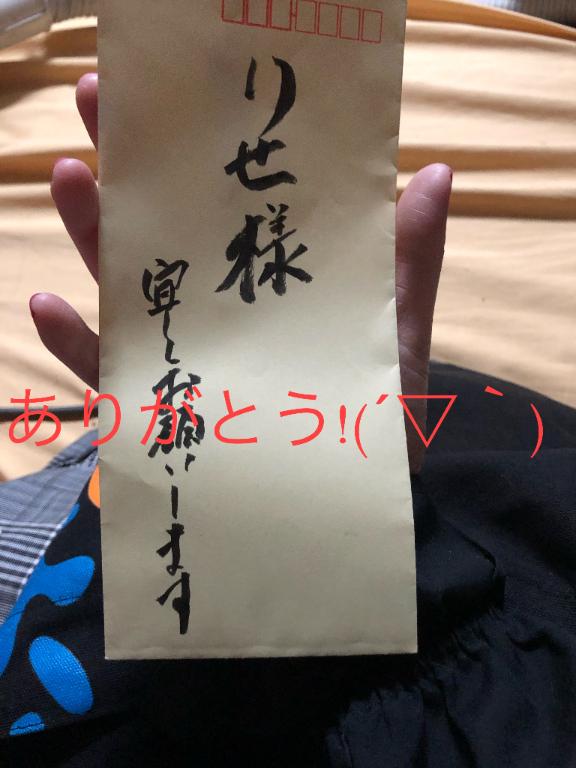 りせ様
宜しくお願いします
ありがとう!(´▽｀)